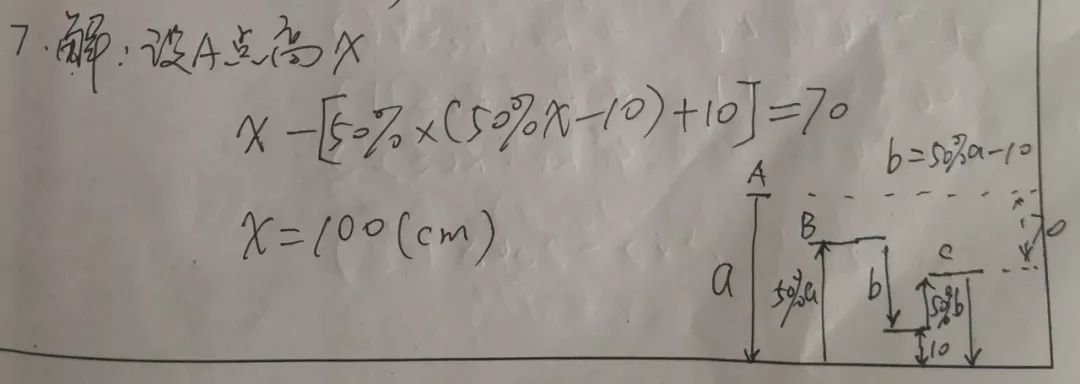 7.解:设A点高x
x-[50%×(50%x-10)+10]=70
b=50%a-10
x=100(cm)
A
B
C
70
a
50%a
b
50%b
10